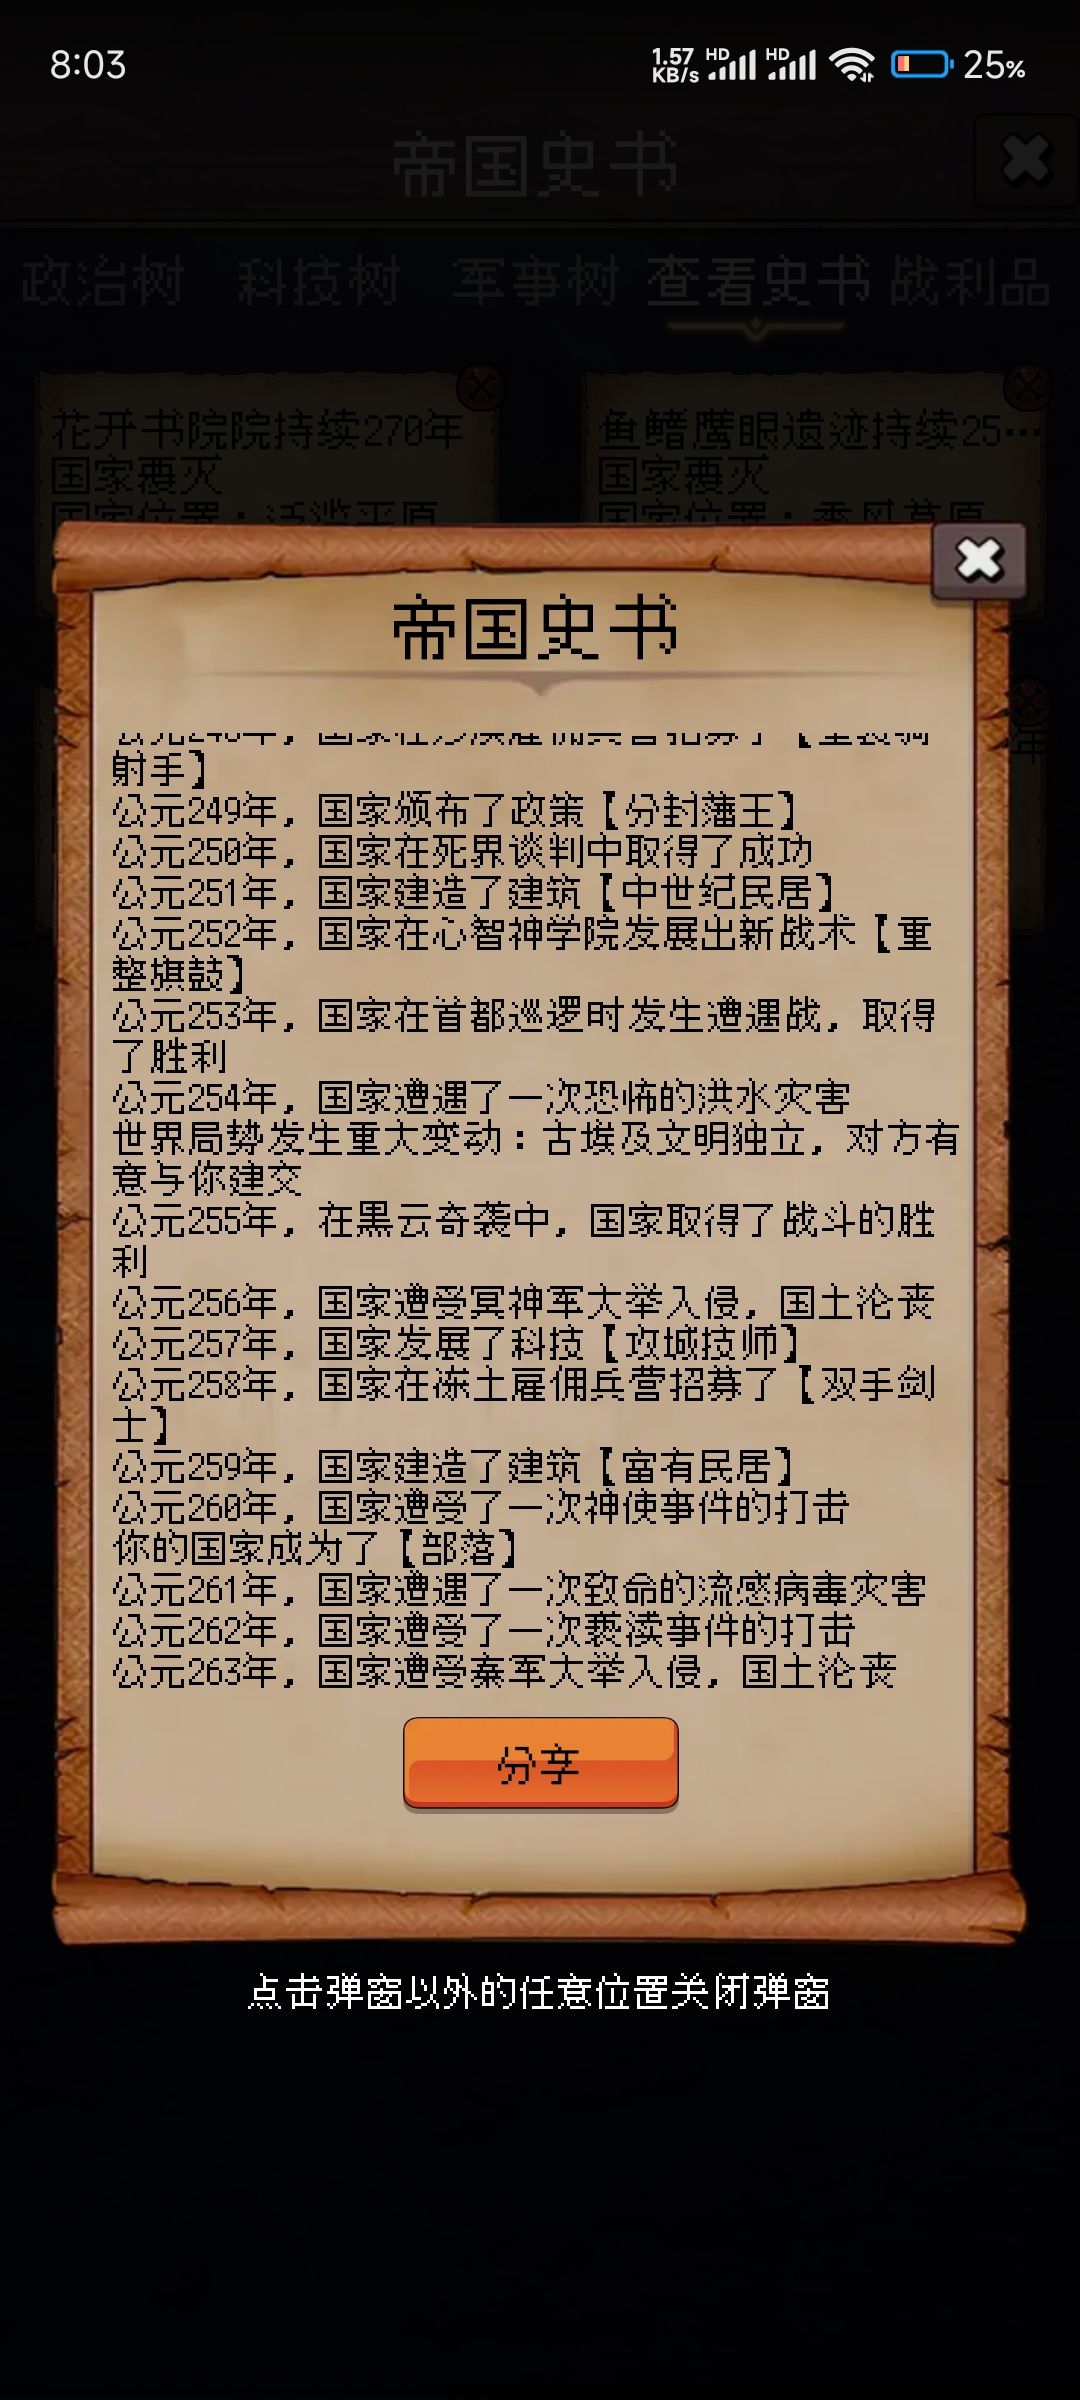 8:03
1.57 KB/s HD HD 25%
帝国史书
政治树 科技树 军事树 查看史书 战利品
花开书院院持续270年
鱼鳍鹰眼遗迹持续25…
国家覆灭
国家覆灭
国家位置：泛滥平原
国家位置：季风草原
帝国史书
射手】
公元249年，国家颁布了政策【分封藩王】
公元250年，国家在死界谈判中取得了成功
公元251年，国家建造了建筑【中世纪民居】
公元252年，国家在心智神学院发展出新战术【重
整旗鼓】
公元253年，国家在首都巡逻时发生遭遇战，取得
了胜利
公元254年，国家遭遇了一次恐怖的洪水灾害
世界局势发生重大变动：古埃及文明独立，对方有
意与你建交
公元255年，在黑云奇袭中，国家取得了战斗的胜
利
公元256年，国家遭受冥神军大举入侵，国土沦丧
公元257年，国家发展了科技【攻城技师】
公元258年，国家在冻土雇佣兵营招募了【双手剑
士】
公元259年，国家建造了建筑【富有民居】
公元260年，国家遭受了一次神使事件的打击
你的国家成为了【部落】
公元261年，国家遭遇了一次致命的流感病毒灾害
公元262年，国家遭受了一次亵渎事件的打击
公元263年，国家遭受秦军大举入侵，国土沦丧
分享
点击弹窗以外的任意位置关闭弹窗